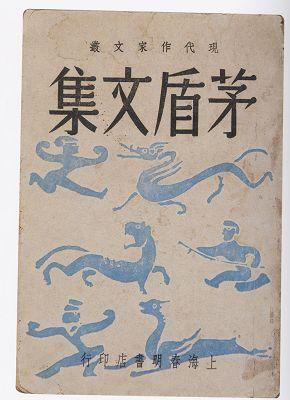 現代作家文叢
茅盾文集
上海春明書店印行